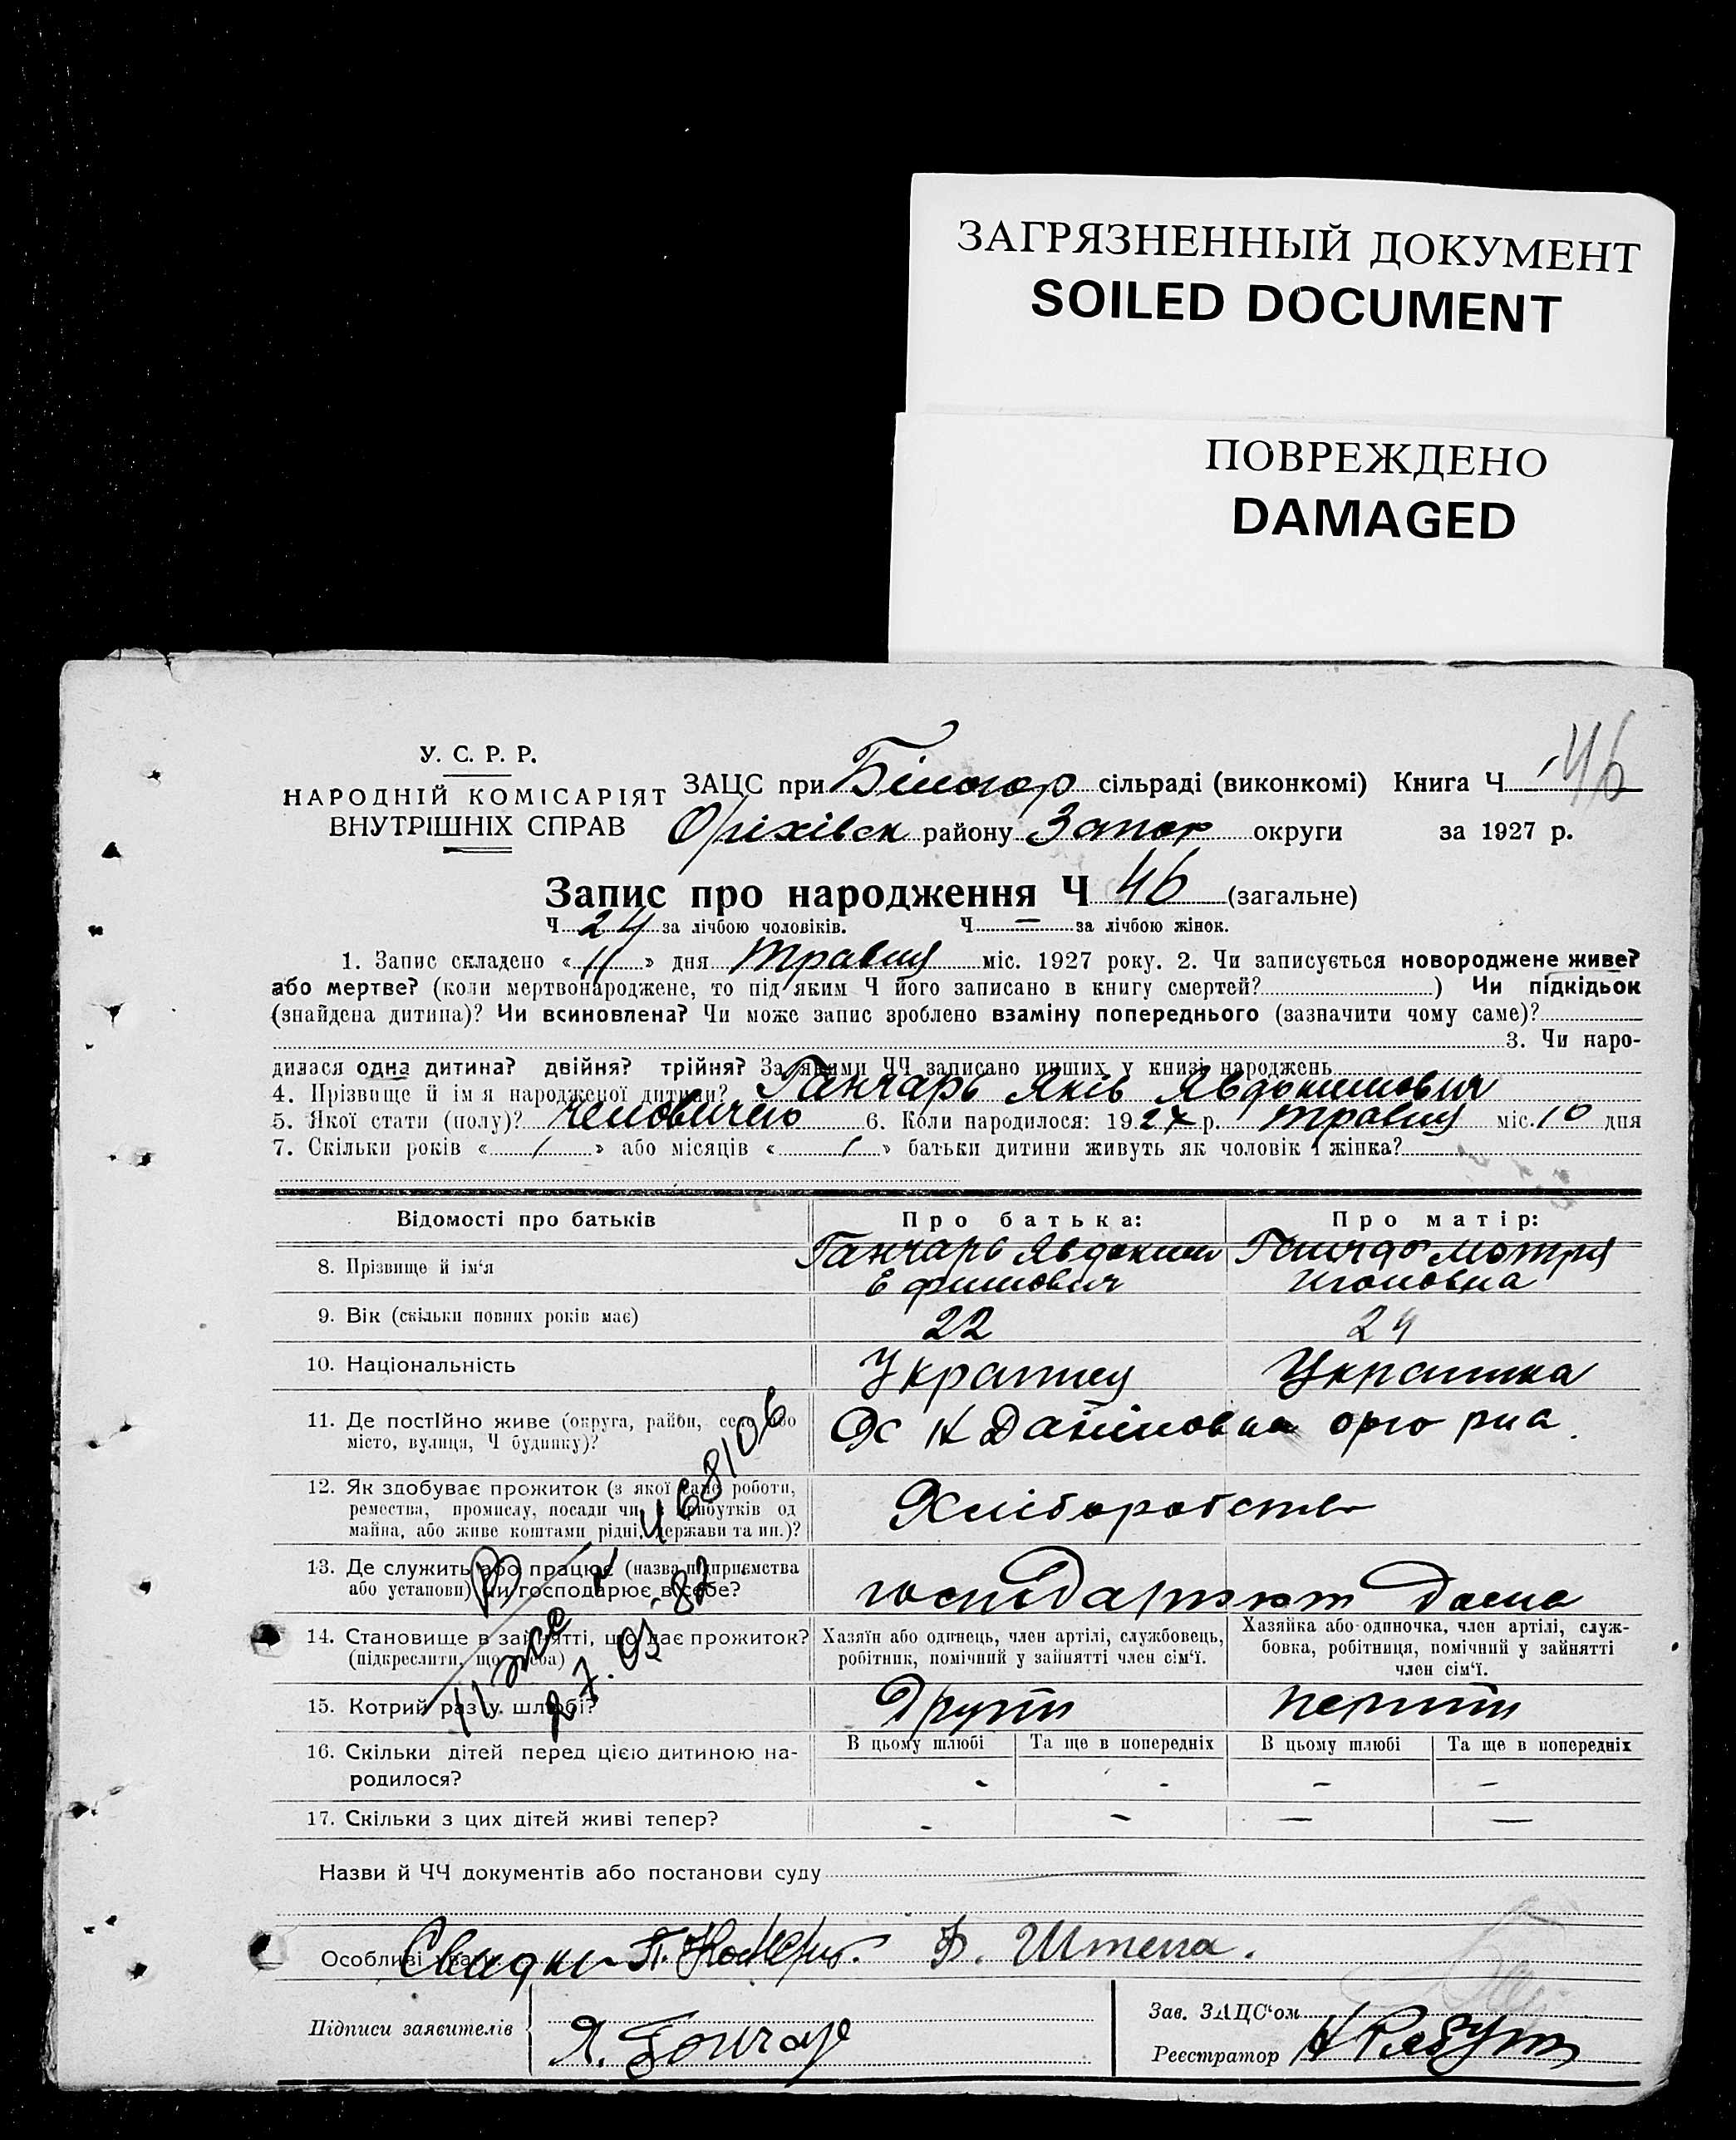 ЗАГРЯЗНЕННЫЙ ДОКУМЕНТ
SOILED DOCUMENT
ПОВРЕЖДЕНО
DAMAGED
У. С. Р. Р.
НАРОДНІЙ КОМІСАРІЯТ
ВНУТРІШНІХ СПРАВ
ЗАЦС при Білогор сільраді (виконкомі) Книга Ч 46
Оріхівск району Запор округи за 1927 р.
Запис про народження Ч 46 (загальне)
Ч 24 за лічбою чоловіків. Ч — за лічбою жінок.
1. Запис складено « 11 » дня травня міс. 1927 року. 2. Чи записується новороджене живе?
або мертве? (коли мертвонароджене, то під яким Ч його записано в книгу смертей? ) Чи підкідьок
(знайдена дитина)? Чи всиновлена? Чи може запис зроблено взаміну попереднього (зазначити чому саме)?
3. Чи наро-
дилася одна дитина? двійня? трійня? За якими ЧЧ записано инших у книзі народжень
4. Прізвище й ім'я народженої дитини? Ганчарь Яків Явдокимович
5. Якої стати (полу)? 6. Коли народилося: 1927 р. травня міс. 10 дня
7. Скільки років « / » або місяців « / » батьки дитини живуть як чоловік і жінка?
Відомості про батьків Про батька: Про матір:
8. Прізвище й ім'я Ганчарь Явдоким Мотря
Ефимович
9. Вік (скільки повних років має) 22 24
10. Національність Українец Українка
11. Де постІйно живе (округа, район, село або
місто, вулиця, Ч будинку)?
12. Як здобуває прожиток (з якої саме роботи,
ремества, промислу, посади чи з прибутків од
майна, або живе коштами рідні, держави та ин.)?
Хліборобство
13. Де служить або працює (назва підприємства
або установи) чи господарює в себе?
господарюют дома
14. Становище в зайнятті, що дає прожиток?
(підкреслити, що треба)
Хазяїн або одинець, член артілі, службовець,
робітник, помічний у зайнятті член сім'ї.
Хазяйка або одиночка, член артілі, служ-
бовка, робітниця, помічний у зайнятті
член сім'ї.
15. Котрий раз у шлюбі? Другій первій
16. Скільки дітей перед цією дитиною на-
родилося?
В цьому шлюбі Та ще в попередніх В цьому шлюбі Та ще в попередніх
- - - -
17. Скільки з цих дітей живі тепер? - - - -
Назви й ЧЧ документів або постанови суду
Особливі уваги Свидки Штепа.
Підписи заявителів
Зав. ЗАЦС'ом
Реєстратор